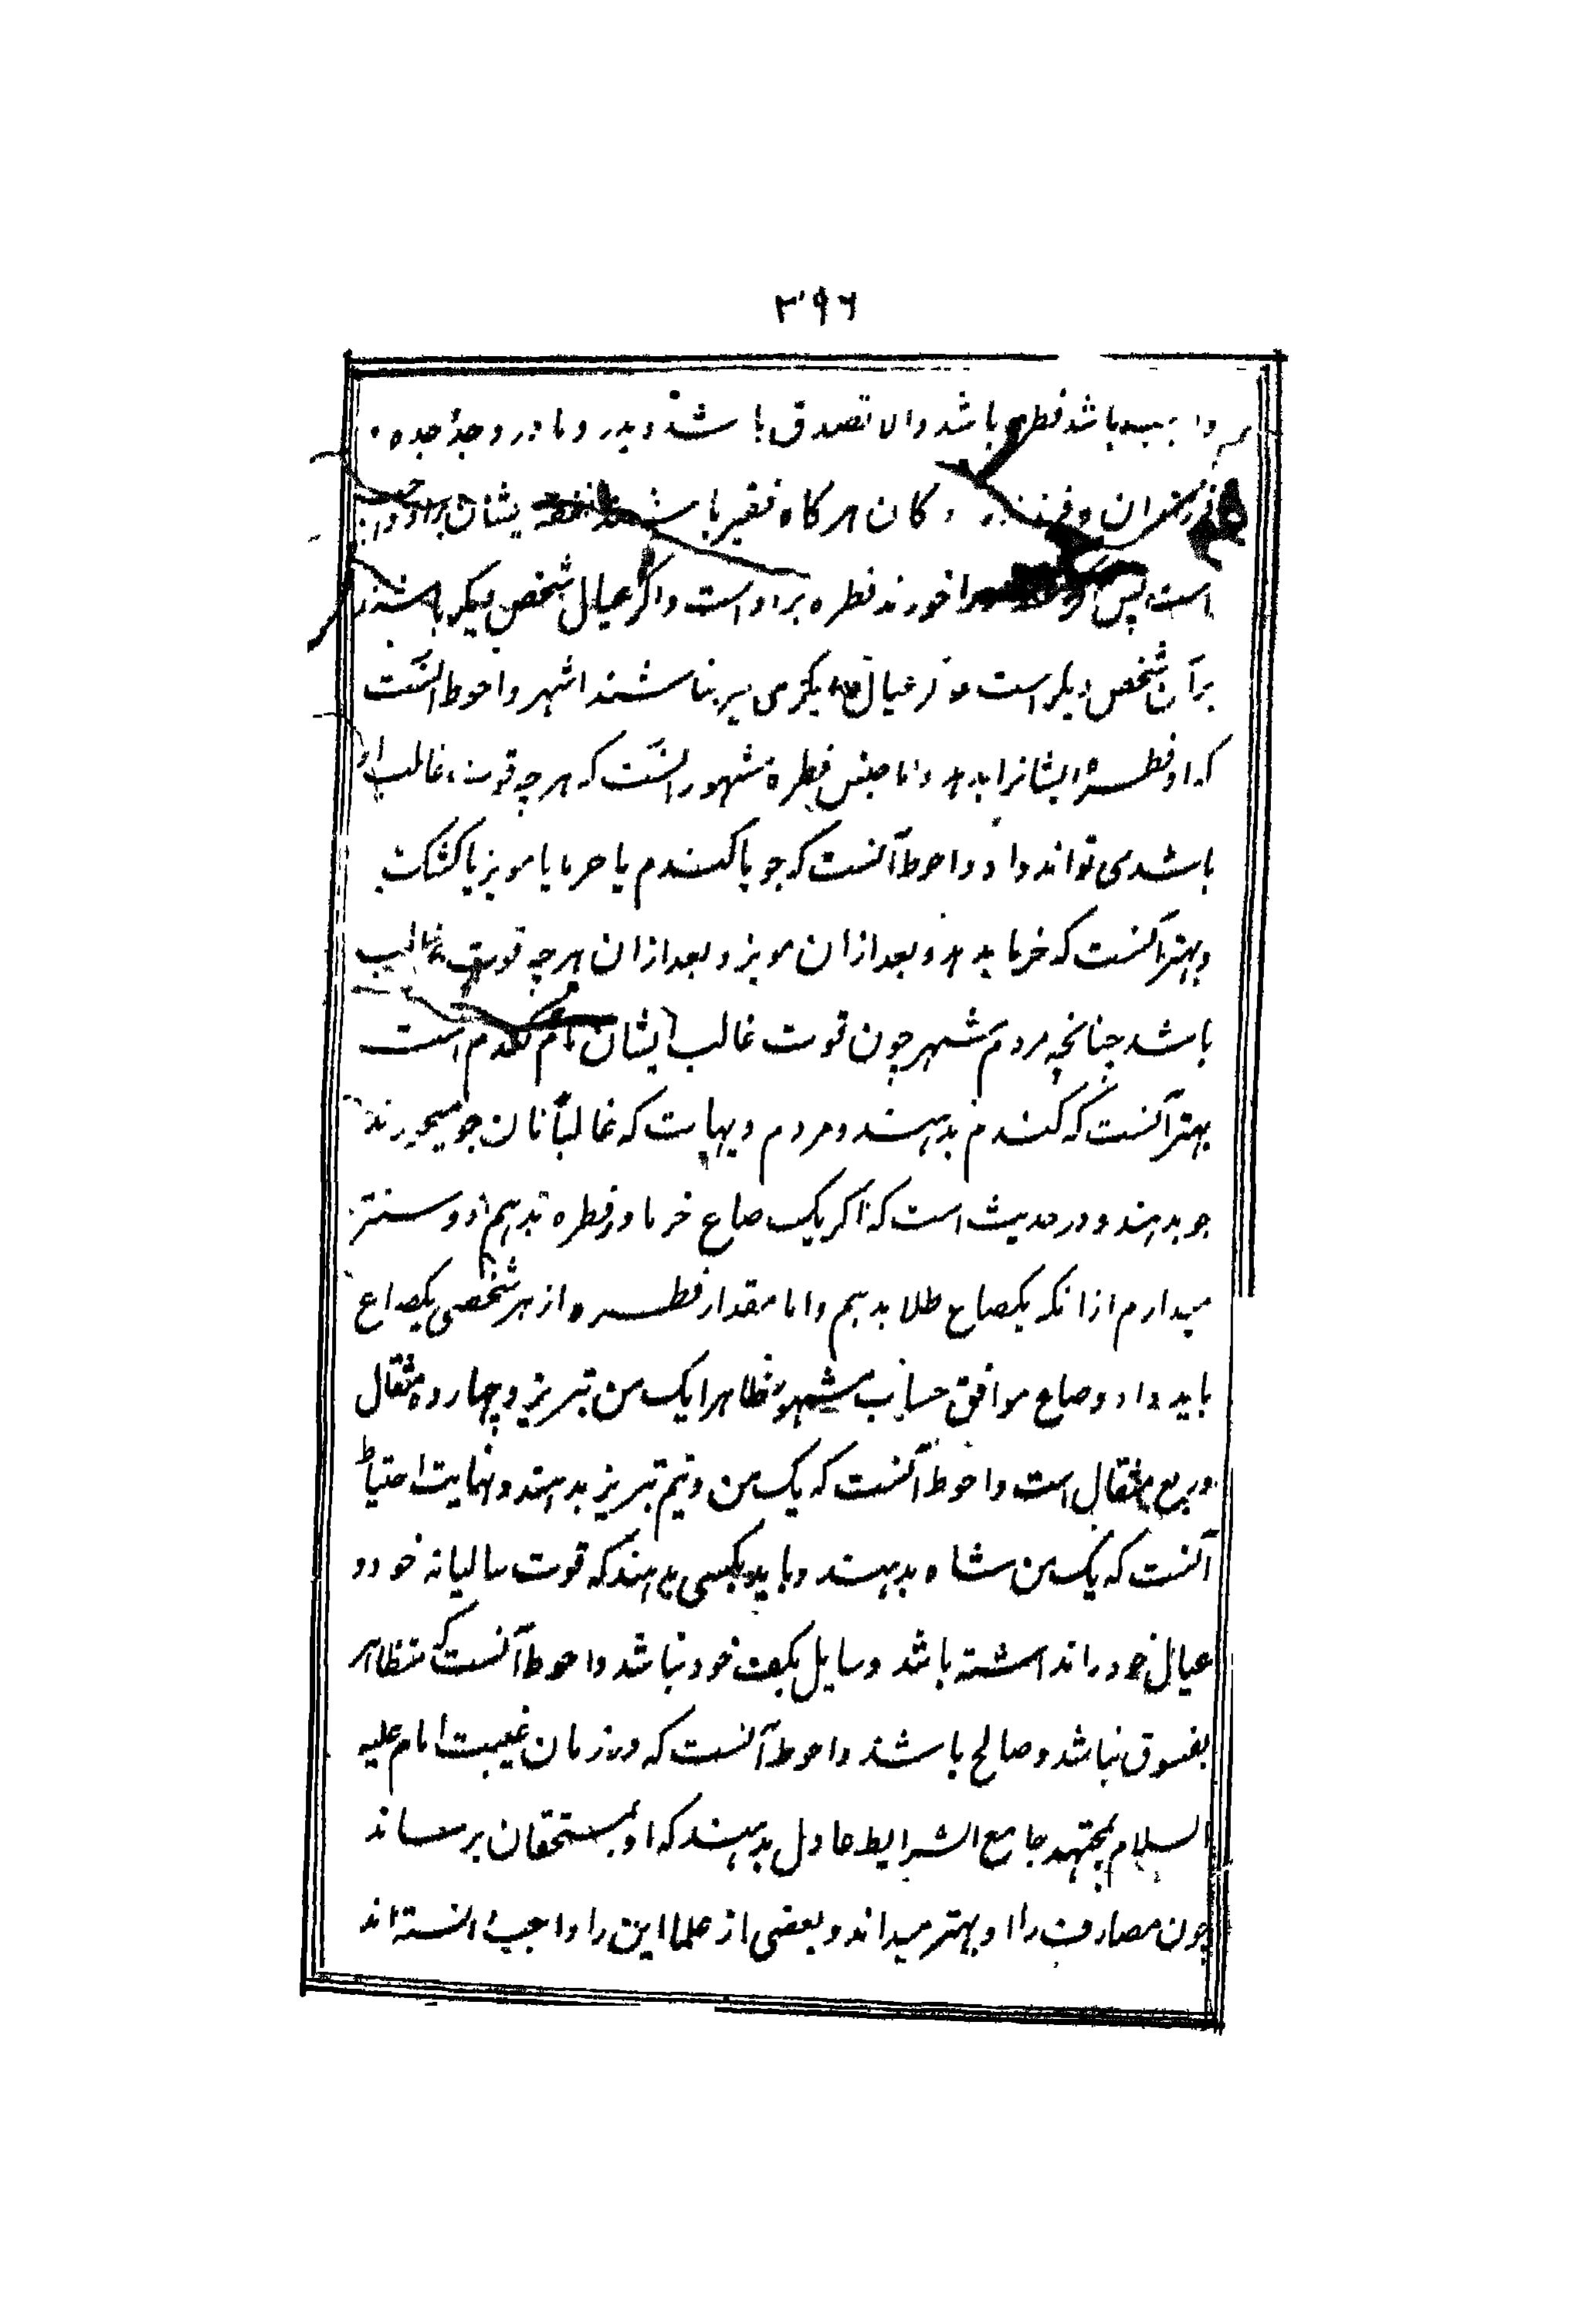 ۳۹۶
باشد فطره باشد والا تصدق باشد و پدر و مادر و جد و جده
و فرزندان هرکاه فقیر باشند نفقه ایشان بر او واجب
است پس را خورند فطره بر او است و اکر عیال شخص دیکر باشند
بر آن شخص دیکر است و از عیال دیکری نیز نباشند اشهر و احوط آنست
که او فطره ایشانرا بدهد و اما جنس فطره مشهور آنست که هر چه قوت غالب او
باشد می تواند داد و احوط آنست که جو یا کندم یا خرما یا مویز یا کشک
و بهتر آنست که خرما بدهد و بعد از ان مویز و بعد از ان هر چه قوت غالب
باشد چنانچه مردم شهر چون قوت غالب ایشان کندم است
بهتر آنست که کندم بدهند و مردم دیهات که غالباً نان جو میخورند
جو بدهند و در حدیث است که اکر یک صاع خرما در فطره بدهم دوستتر
میدارم از انکه یکصاع طلا بدهم و اما مقدار فطره از هر شخصی یکصاع
باید داد و صاع موافق حساب مشهور ظاهرا یک من تبریز و چهارده مثقال
و ربع مثقال است و احوط آنست که یک من و نیم تبریز بدهند و نهایت احتیاط
آنست که یک من شاه بدهند و باید بکسی بدهند که قوت سالیانه خود و
عیال خود را نداشته باشد و سایل بکف خود نباشد و احوط آنست که متظاهر
بفسوق نباشد و صالح باشد و احوط آنست که در زمان غیبت امام علیه
السلام بمجتهد جامع الشرایط عادل بدهند که او بمستحقان برساند
چون مصارف را او بهتر میداند و بعضی از علما این را واجب دانسته اند